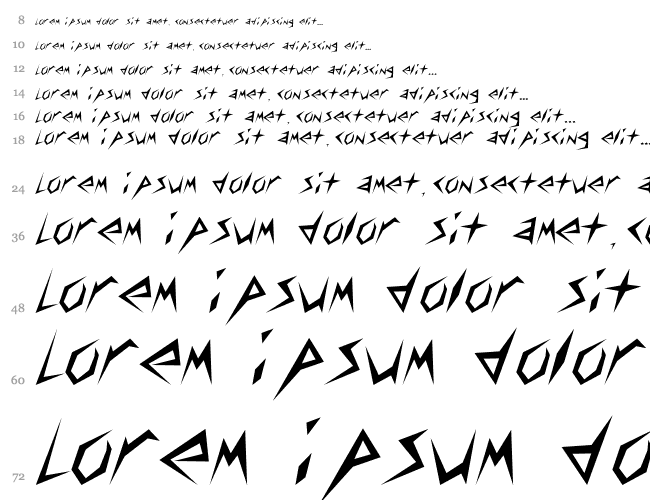 8 Lorem ipsum dolor sit amet, consectetuer adipiscing elit...
10 Lorem ipsum dolor sit amet, consectetuer adipiscing elit...
12 Lorem ipsum dolor sit amet, consectetuer adipiscing elit...
14 Lorem ipsum dolor sit amet, consectetuer adipiscing elit...
16 Lorem ipsum dolor sit amet, consectetuer adipiscing elit...
18 Lorem ipsum dolor sit amet, consectetuer adipiscing elit...
24 Lorem ipsum dolor sit amet, consectetuer a
36 Lorem ipsum dolor sit amet, co
48 Lorem ipsum dolor sit
60 Lorem ipsum dolor
72 Lorem ipsum do